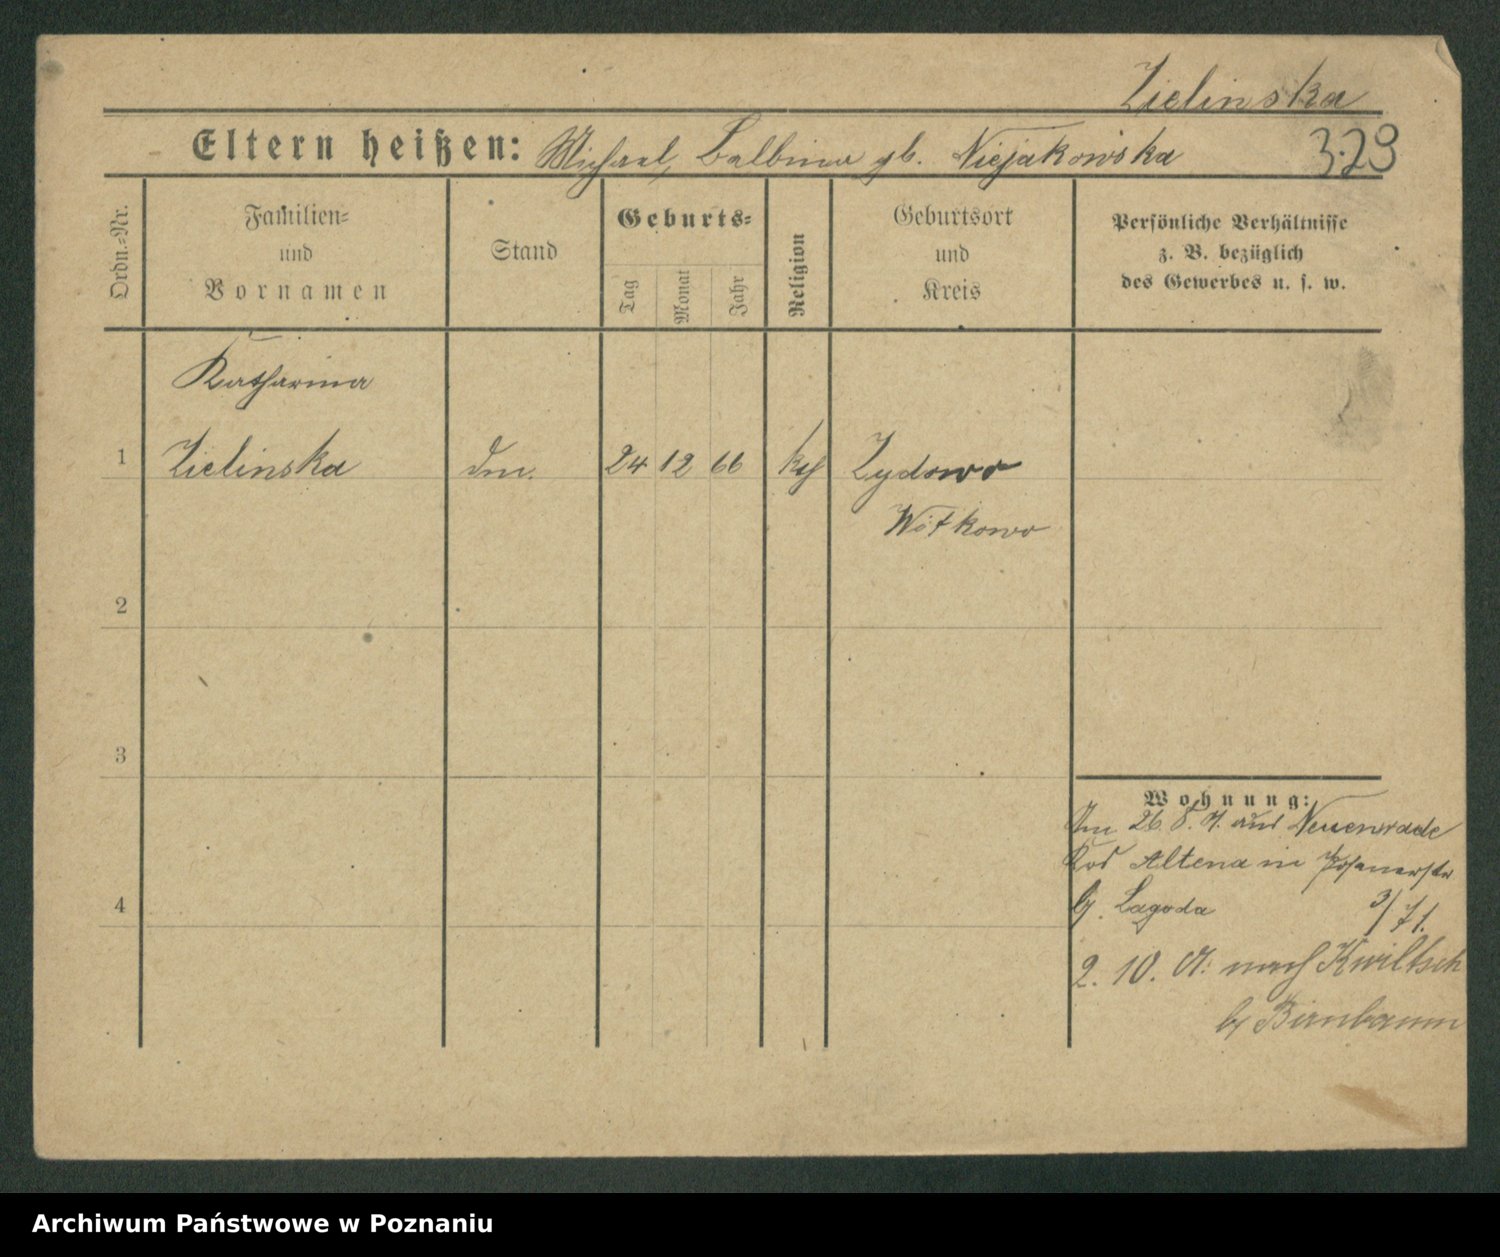 Zielinska
Eltern heißen: Michael, Balbina gb. Niejakowska
329
Ordn.-Nr.
Familien-
und
Vornamen
Stand
Geburts-
Tag
Monat
Jahr
Religion
Geburtsort
und
Kreis
Persönliche Verhältnisse
z. B. bezüglich
des Gewerbes u. s. w.
Katharina
1 Zielinska 24 12 66 kth Zydowo
Witkowo
2
3
Wohnung:
26. 8. aus Neuenrade
Altena in Posenerstr
b/ Lagoda 3/71.
4
2. 10. nach Kwiltsch
b/ Birnbaum
Archiwum Państwowe w Poznaniu